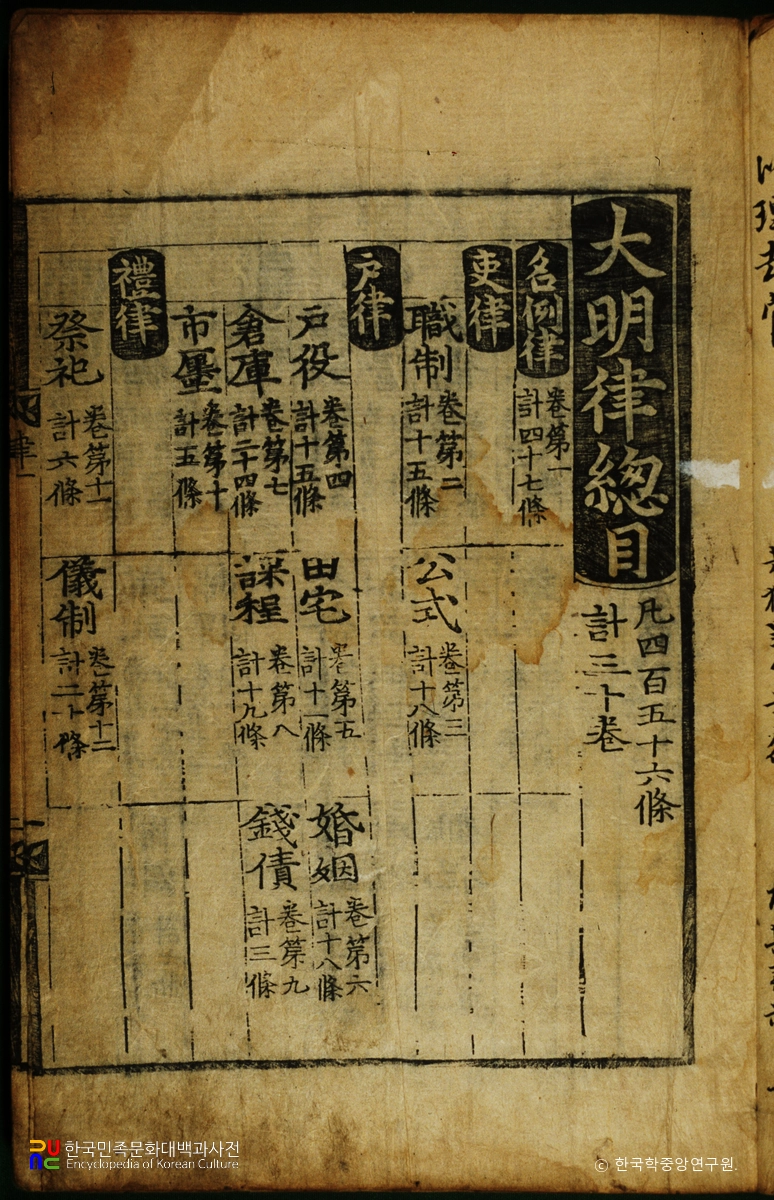 大明律總目
凡四百五十六條
計三十卷
名例律
卷第一
計四十七條
吏律
職制
卷第二
計十五條
公式
卷第三
計十八條
户律
户役
卷第四
計十五條
田宅
卷第五
計十一條
婚姻
卷第六
計十八條
倉庫
卷第七
計二十四條
課程
卷第八
計十九條
錢債
卷第九
計三條
市廛
卷第十
計五條
禮律
祭祀
卷第十一
計六條
儀制
卷第十二
計二十條
한국민족문화대백과사전
Encyclopedia of Korean Culture
© 한국학중앙연구원